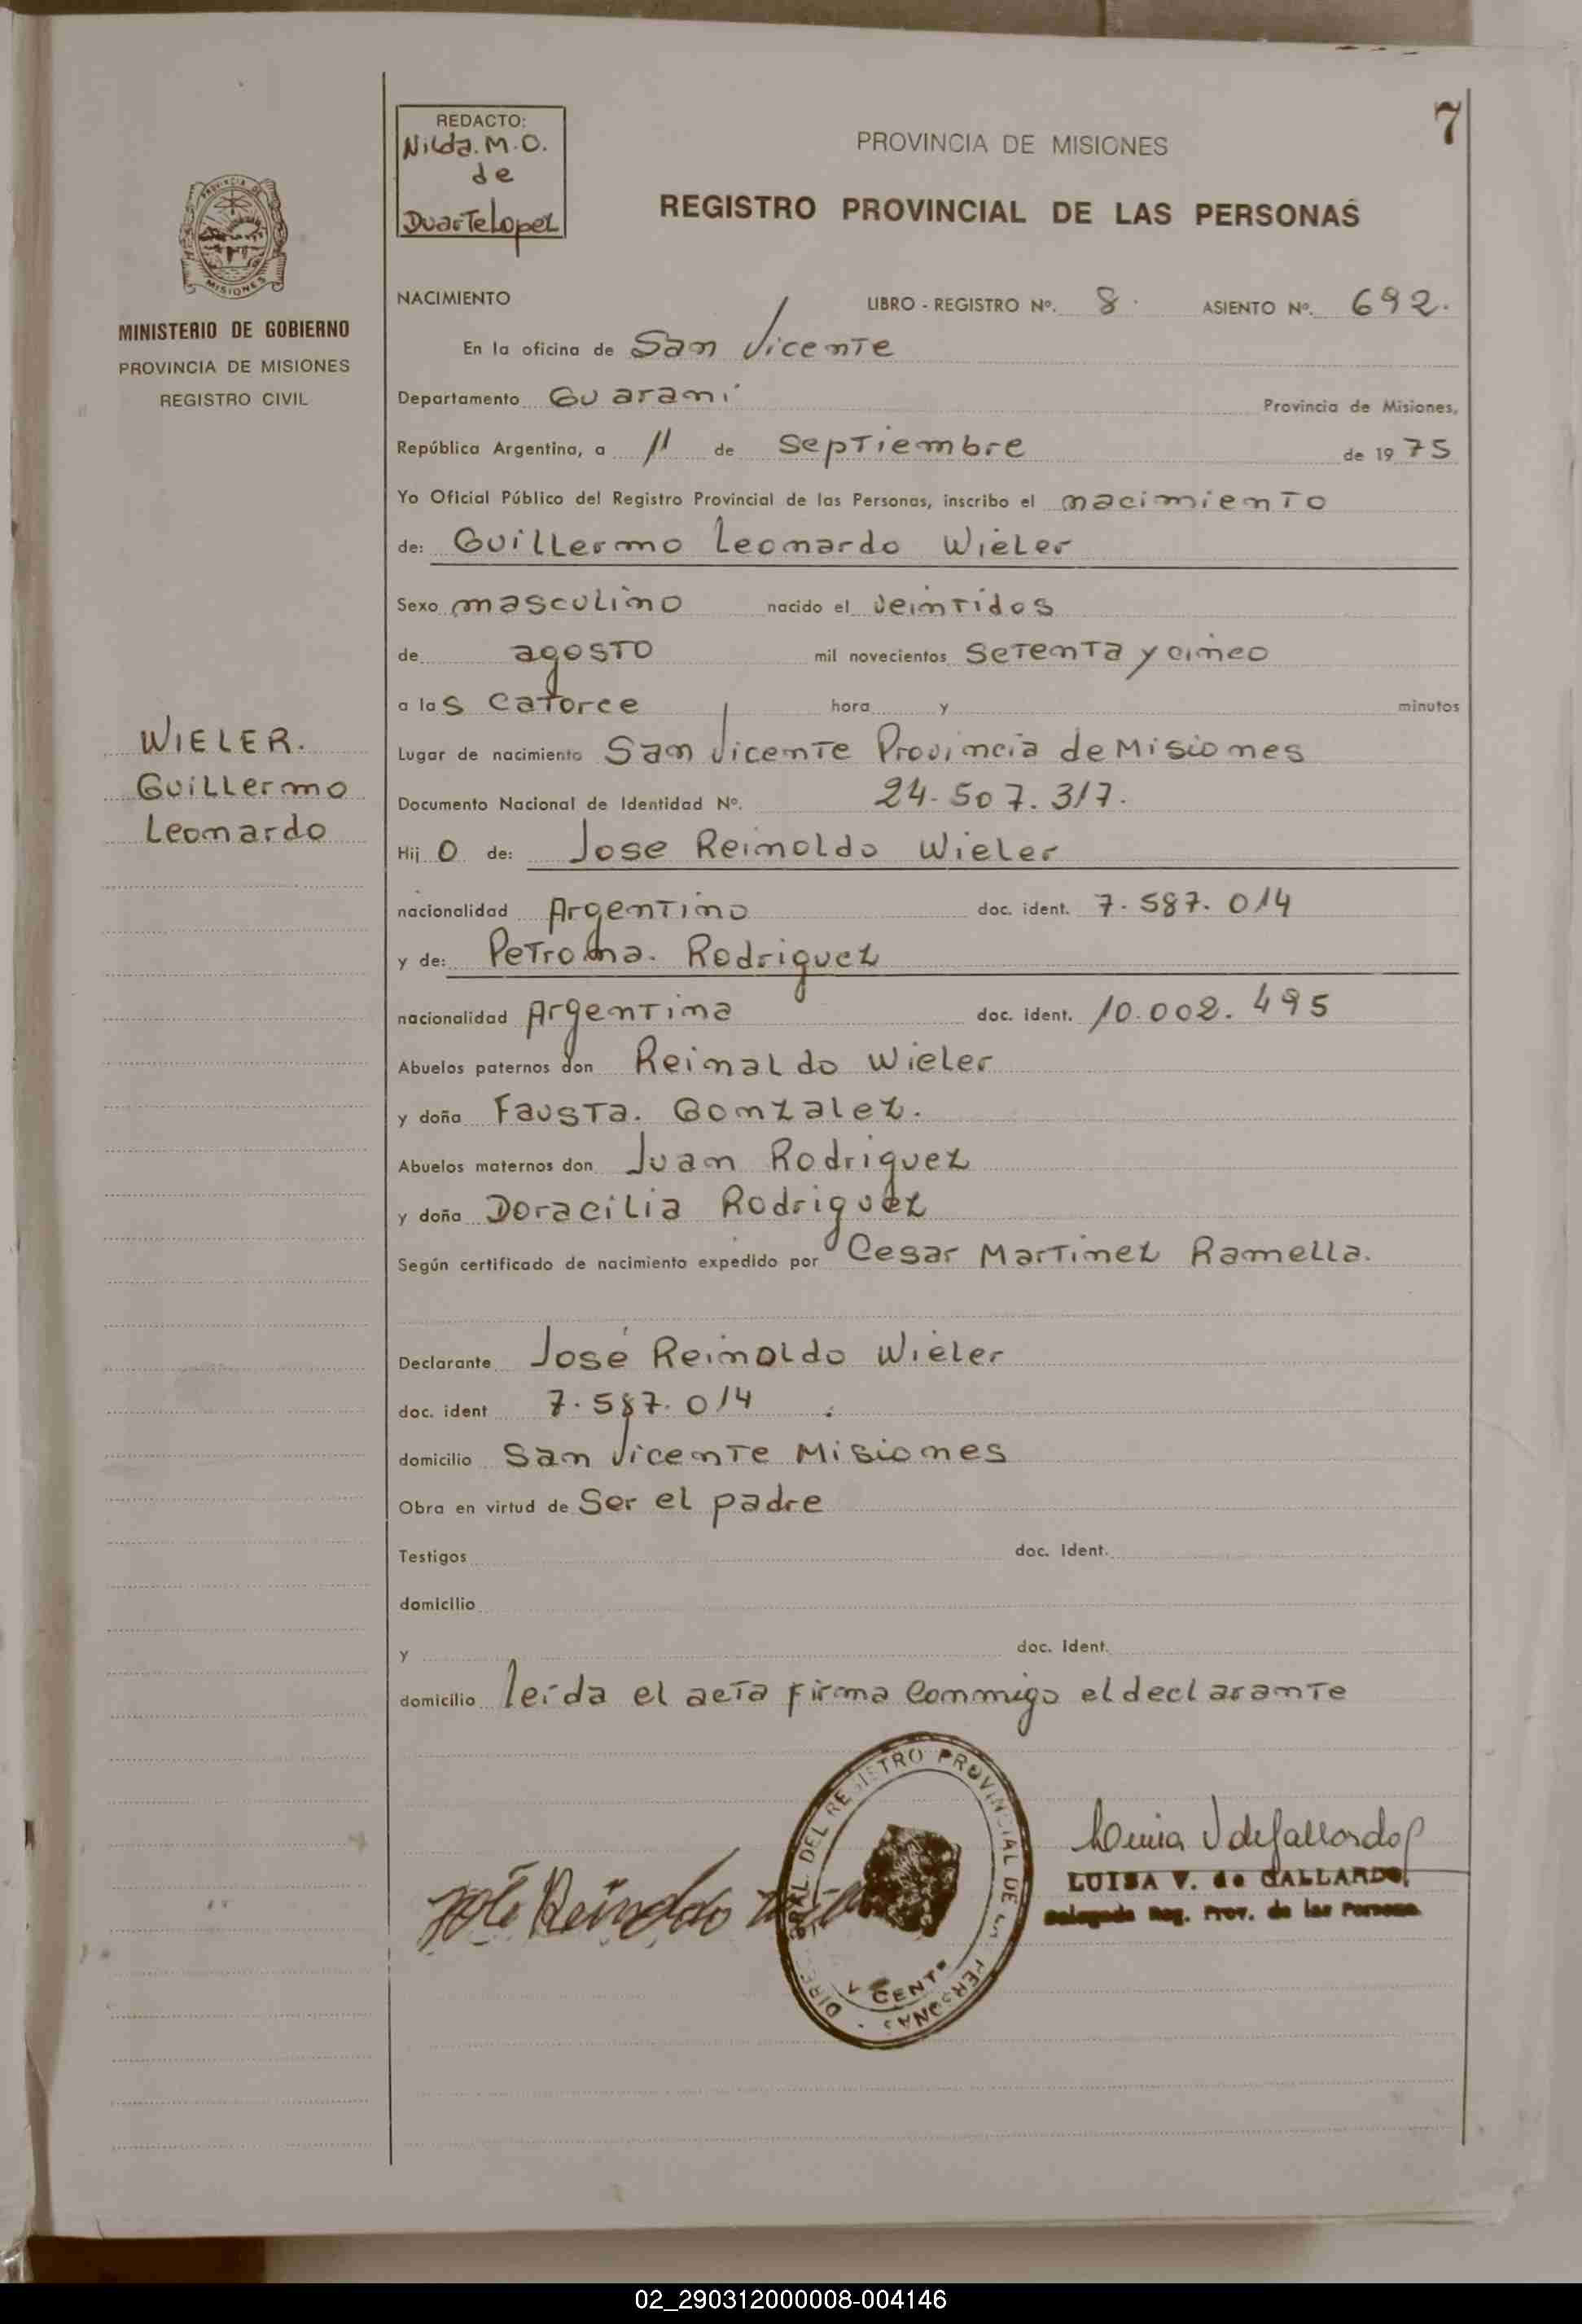 7
REDACTO:
Nilda. M. O.
de
Duarte Lopez
PROVINCIA DE MISIONES
REGISTRO PROVINCIAL DE LAS PERSONAS
PROVINCIA DE
MISIONES
MINISTERIO DE GOBIERNO
PROVINCIA DE MISIONES
REGISTRO CIVIL
NACIMIENTO LIBRO - REGISTRO Nº. 8. ASIENTO Nº. 692.
En la oficina de San Vicente
Departamento Guarani Provincia de Misiones,
República Argentina, a 11 de Septiembre de 19 75
Yo Oficial Público del Registro Provincial de las Personas, inscribo el nacimiento
de: Guillermo Leonardo Wieler
Sexo masculino nacido el veintidos
de agosto mil novecientos Setenta y cinco
a las catorce hora y minutos
WIELER.
Guillermo
Leonardo
Lugar de nacimiento San Vicente Provincia de Misiones
Documento Nacional de Identidad Nº. 24-507.317.
Hij o de: Jose Reinoldo Wieler
nacionalidad Argentino doc. ident. 7.587.014
y de: Petrona. Rodriguez
nacionalidad Argentina doc. ident. 10.002.495
Abuelos paternos don Reinaldo Wieler
y doña Fausta. Gonzalez.
Abuelos maternos don Juan Rodriguez
y doña Doracilia Rodriguez
Según certificado de nacimiento expedido por Cesar Martinez Ramella.
Declarante José Reinoldo Wieler
doc. ident 7.587.014
domicilio San Vicente Misiones
Obra en virtud de Ser el padre
Testigos doc. Ident.
domicilio
y doc. Ident.
domicilio leída el acta firma conmigo el declarante
DIREC. GRAL. DEL REGISTRO PROVINCIAL DE LAS PERSONAS
José Reinoldo
Luisa V de Gallardo
LUISA V. de GALLARDO
Delegada Reg. Prov. de las Personas
02_290312000008-004146